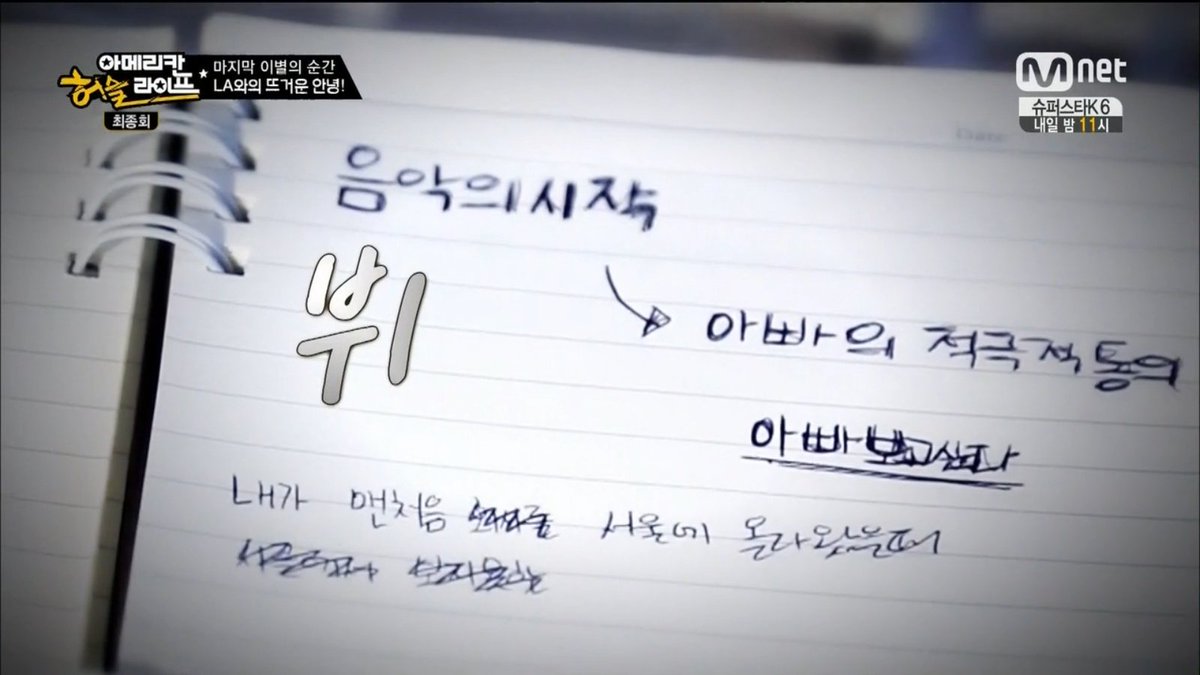 아메리칸
허슬 라이프
최종회
마지막 이별의 순간
LA와의 뜨거운 안녕!
Mnet
슈퍼스타K6
내일 밤 11시
음악의 시작
뷔
아빠의 적극적 통의
아빠 보고싶다
내가 맨처음 서울에 올라왔을때